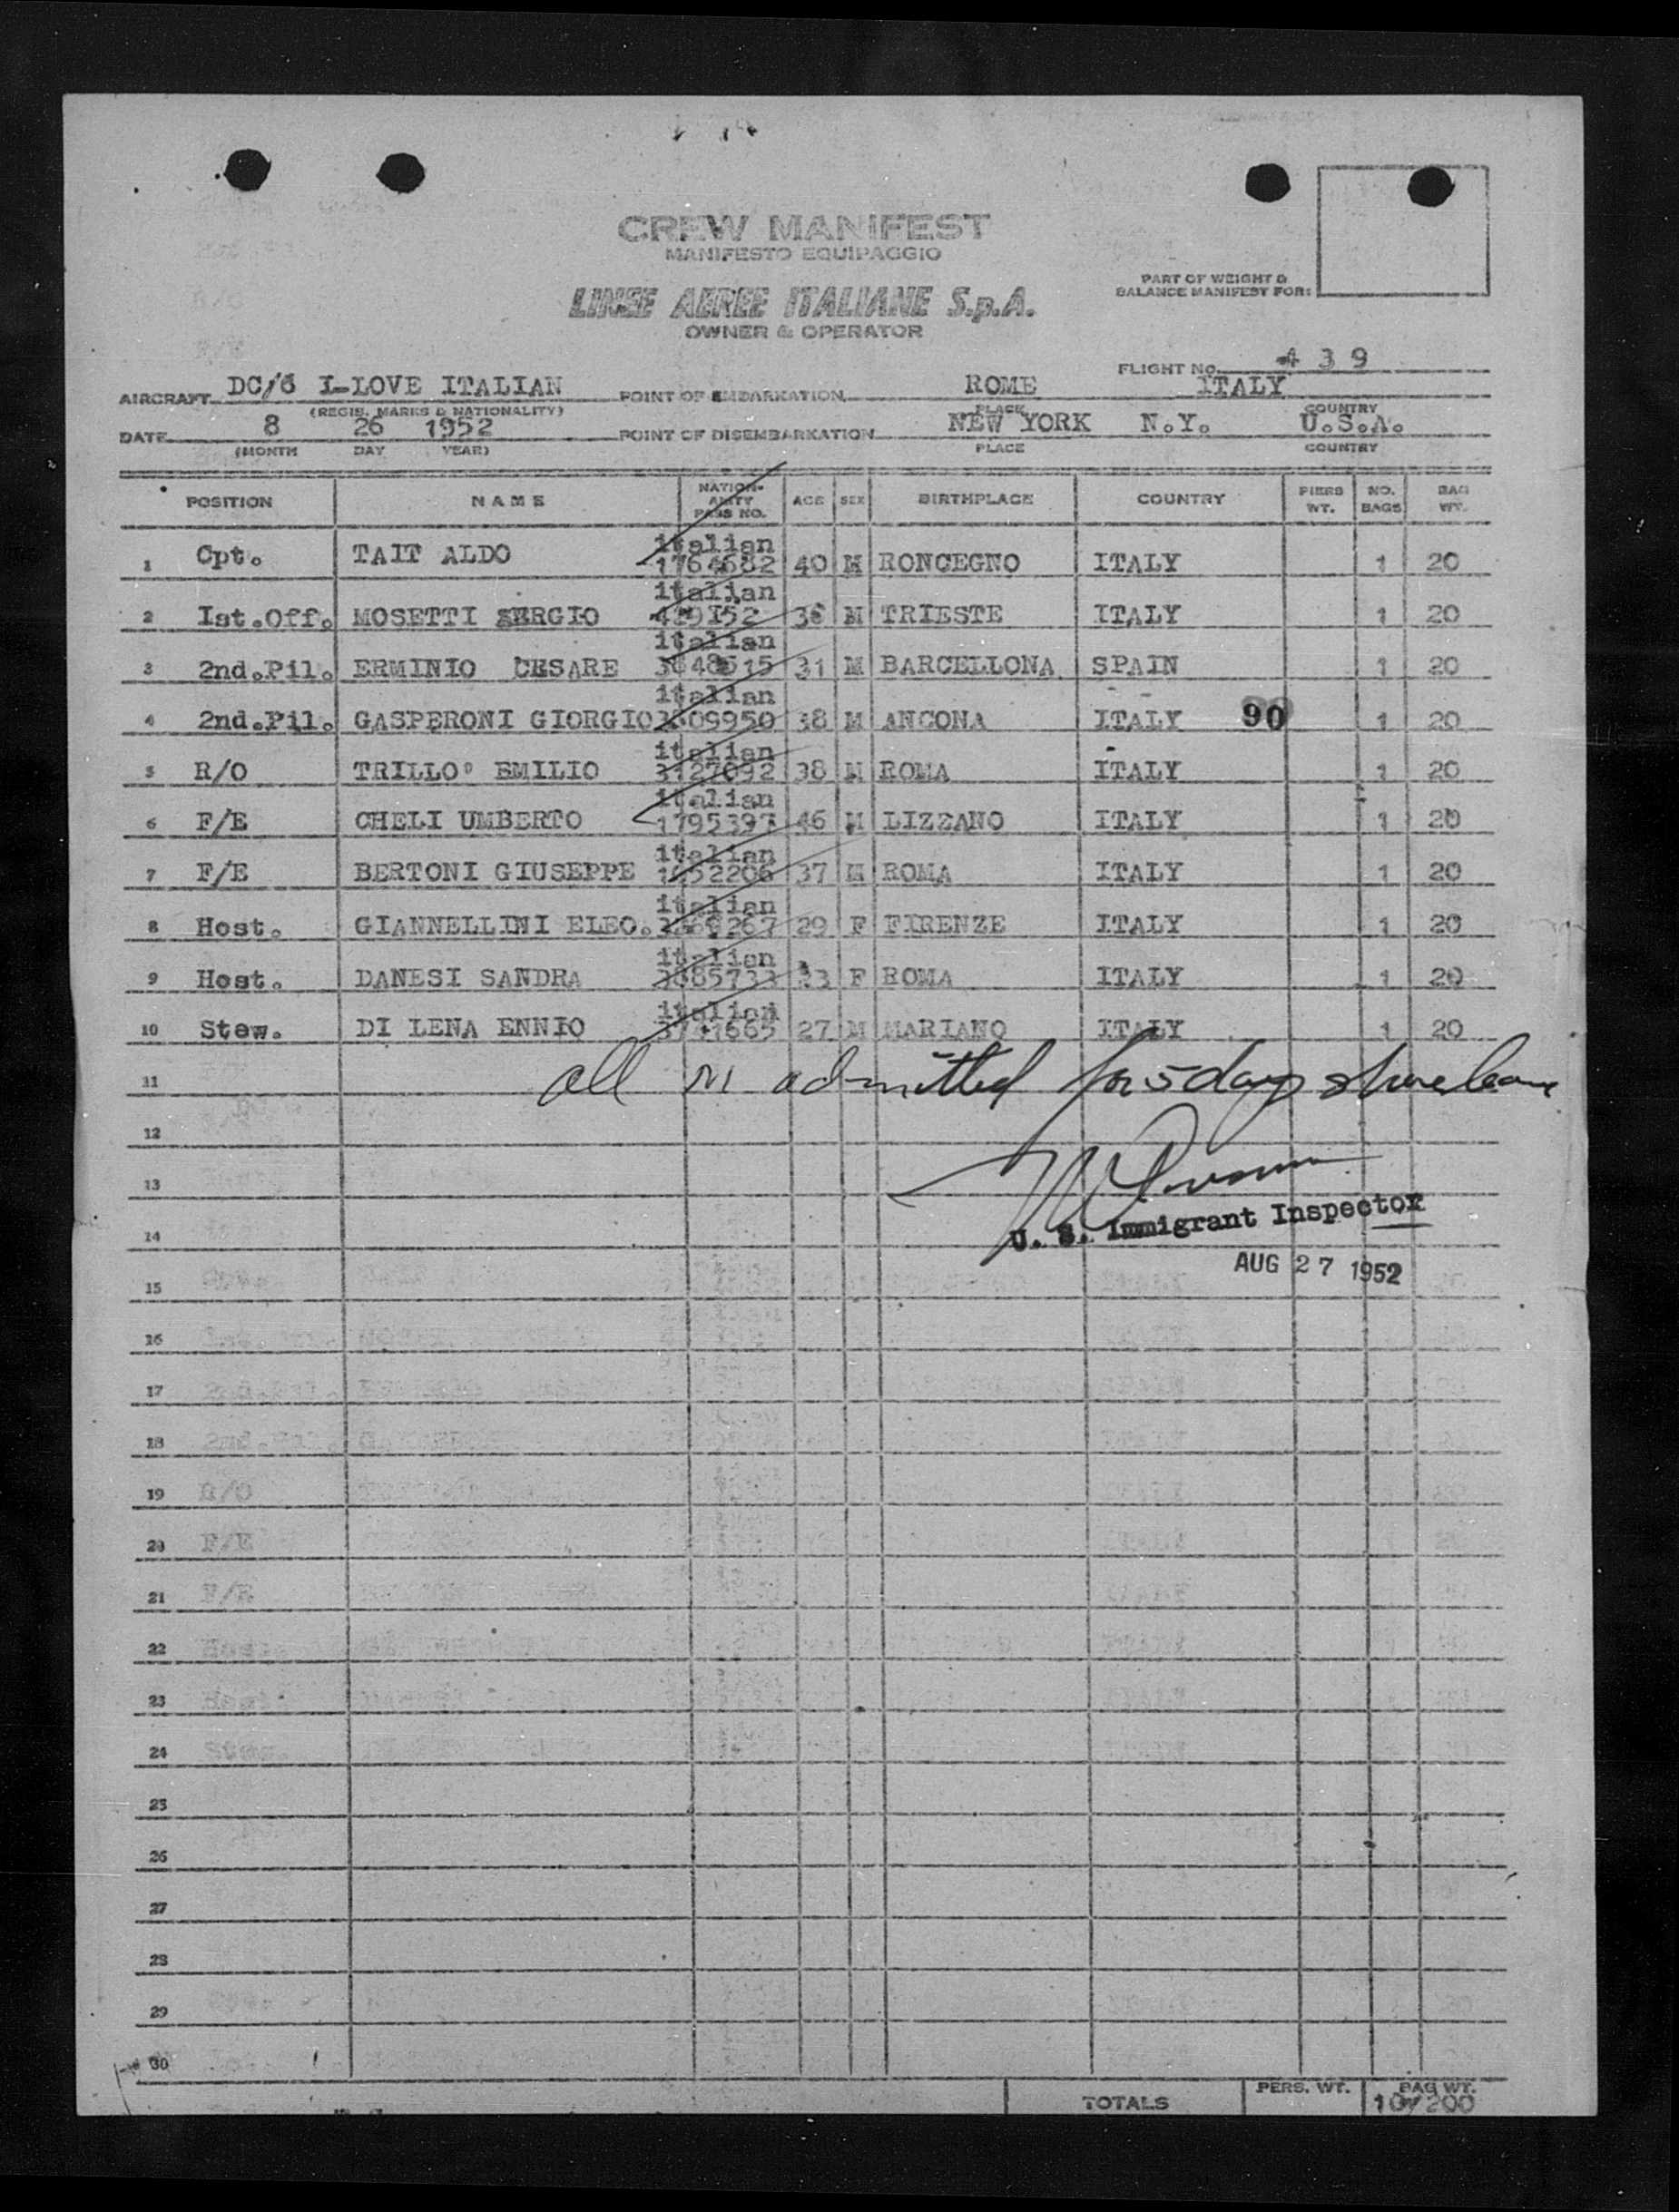 CREW MANIFEST
MANIFESTO EQUIPAGGIO
PART OF WEIGHT &
BALANCE MANIFEST FOR:
LINEE AEREE ITALIANE S.p.A.
OWNER & OPERATOR
FLIGHT No. 4 3 9
AIRCRAFT DC/6 I-LOVE ITALIAN POINT OF EMBARKATION ROME ITALY
(REGIS. MARKS & NATIONALITY) PLACE COUNTRY
DATE 8 26 1952 POINT OF DISEMBARKATION NEW YORK N.Y. U.S.A.
(MONTH DAY YEAR) PLACE COUNTRY
POSITION NAME NATION-ALITY PASS NO. AGE SEX BIRTHPLACE COUNTRY PIERS WT. NO. BAGS BAG WT.
italian
1 Cpt. TAIT ALDO 1764682 40 M RONCEGNO ITALY 1 20
italian
2 Ist.Off. MOSETTI SERGIO 36 M TRIESTE ITALY 1 20
italian
3 2nd.Pil. ERMINIO CESARE 31 M BARCELLONA SPAIN 1 20
italian
4 2nd.Pil. GASPERONI GIORGIO 38 M ANCONA ITALY 90 1 20
italian
5 R/O TRILLO' EMILIO 3127092 38 M ROMA ITALY 1 20
italian
6 F/E CHELI UMBERTO 1795397 46 M LIZZANO ITALY 1 20
italian
7 F/E BERTONI GIUSEPPE 37 M ROMA ITALY 1 20
italian
8 Host. GIANNELLINI ELEO. 29 F FIRENZE ITALY 1 20
italian
9 Host. DANESI SANDRA 33 F ROMA ITALY 1 20
italian
10 Stew. DI LENA ENNIO 3741665 27 M MARIANO ITALY 1 20
11 all admitted for 5 days shore leave
12
13
14 U. S. Immigrant Inspector
AUG 27 1952
15
16
17
18
19
20
21
22
23
24
25
26
27
28
29
30
TOTALS PERS. WT. BAG WT.
10/200